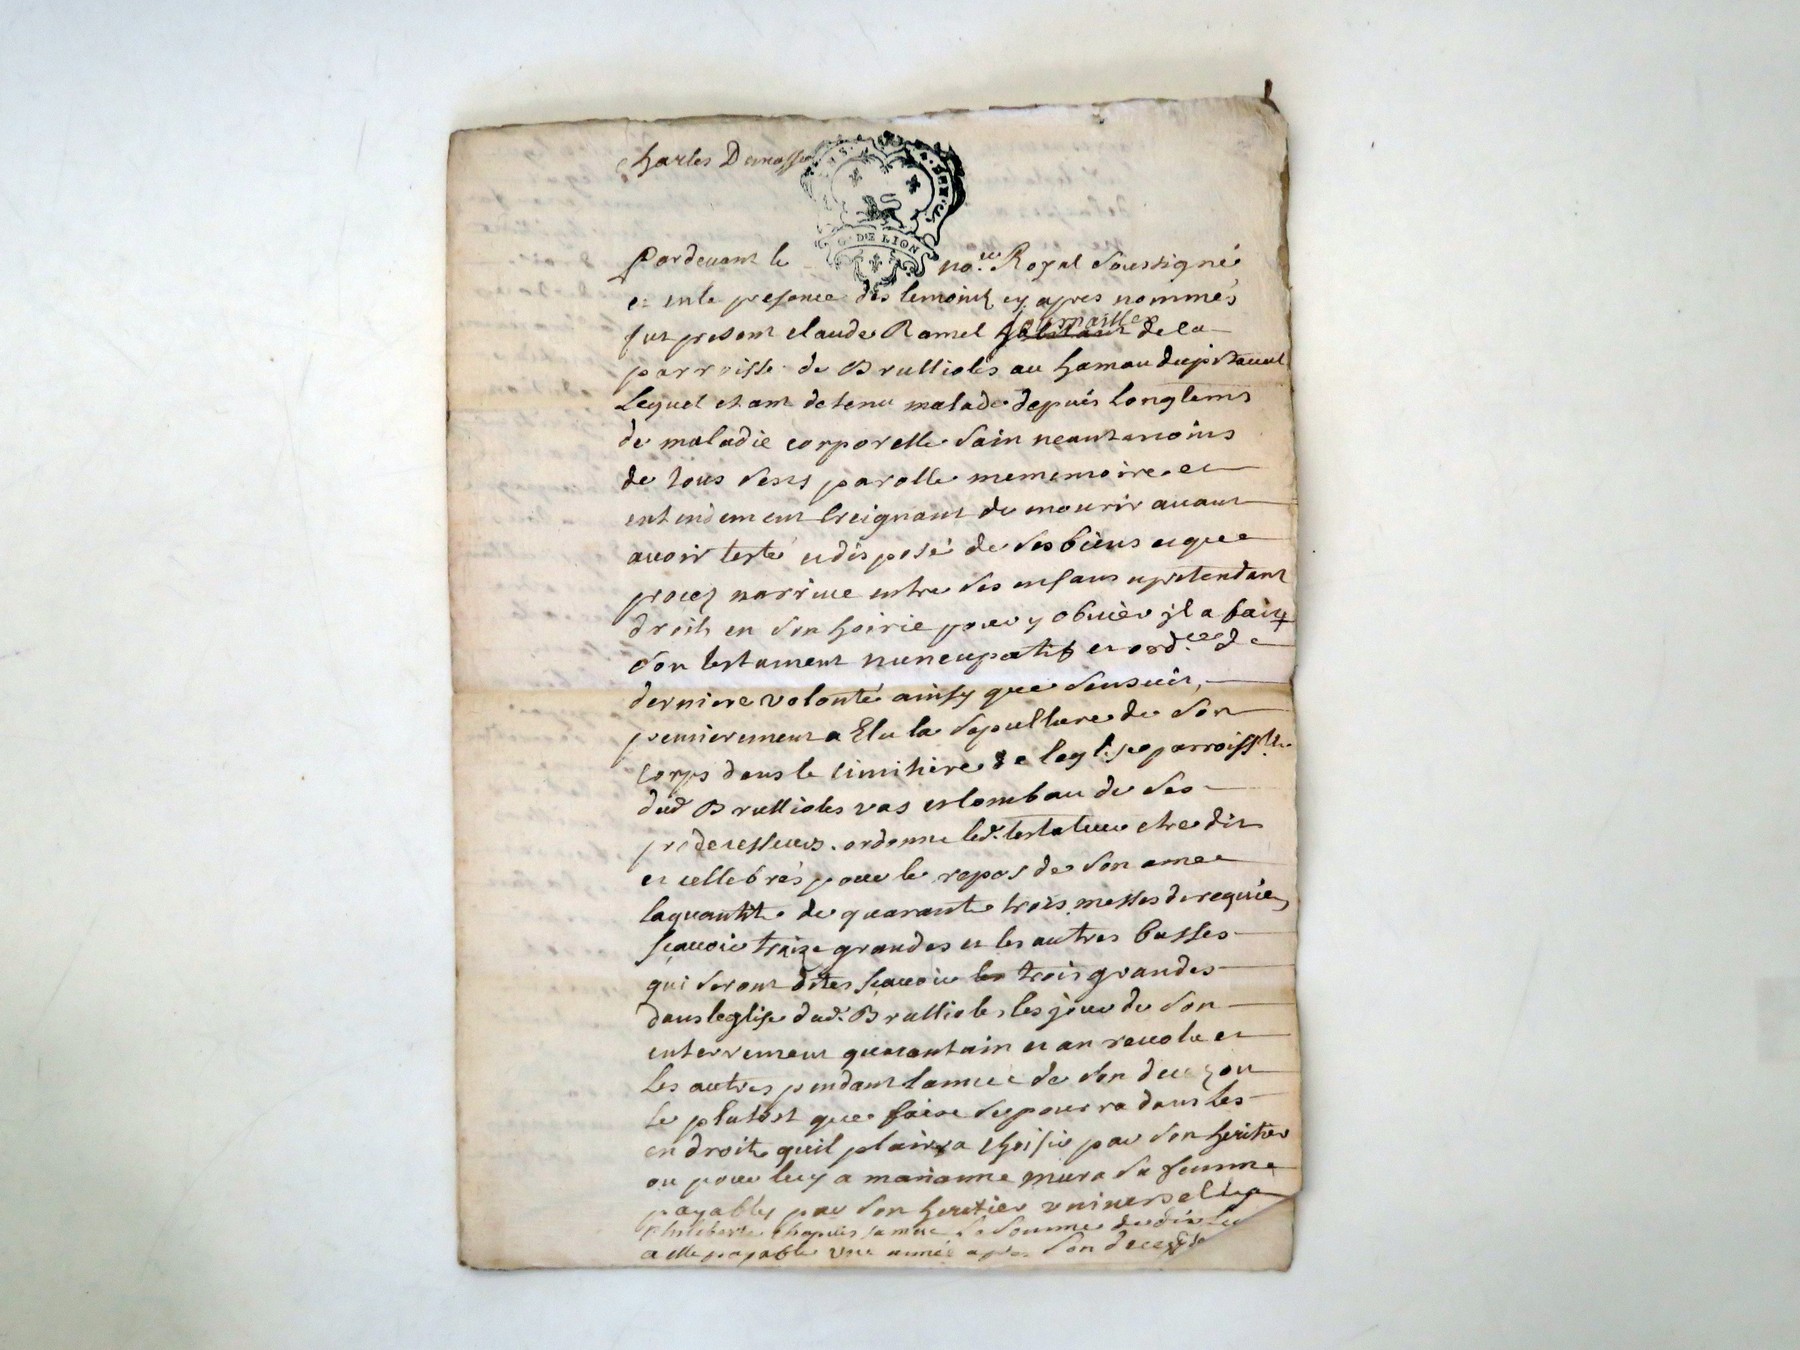 Charles Demasse
G. DE LION
Pardevant le no.re Royal soussigné
et en le presence des temoins cy apres nommés
fut present claude Ramel journaillier habitant de la
parroisse de Brullioles au hamau du pitaval
Lequel etant detenu malade depuis longtems
de maladie corporelle sain neantmoins
de tous sens parolle mememoire et
entendement Creignant de mourir avant
avoir testé et disposé de ses biens et que
procez narrive entre ses enfans et pretendant
droits en son hoirie pour y obvier jl a fait
son testament nuncupatif et ord.ces de
derniere volonté ainsy que sensuit,
premierement a Elu la sepulture de son
corps dans le cimitiere de leglise parroiss.lle
dud Brullioles vas et tombau de ses
predecesseurs. ordonne led. testateur etre dit
et cellebrés pour le repos de son ame
la quantité de quarante trois messes de requiem
scavoir traize grandes et les autres basses
qui seront dites scavoir les trois grandes
dans leglise dud. Brullioles les jour de son
enterrement quarantain et an revolu et
les autres pendant lannée de son decez ou
le plutost que faire se pourra dans les
endroits quil plairra choisir par son heritier
ou pour luy a marianne mura sa femme
payables par son heritier universelle
philiberte sa mere la somme de dix
a elle payable une année apres son deces